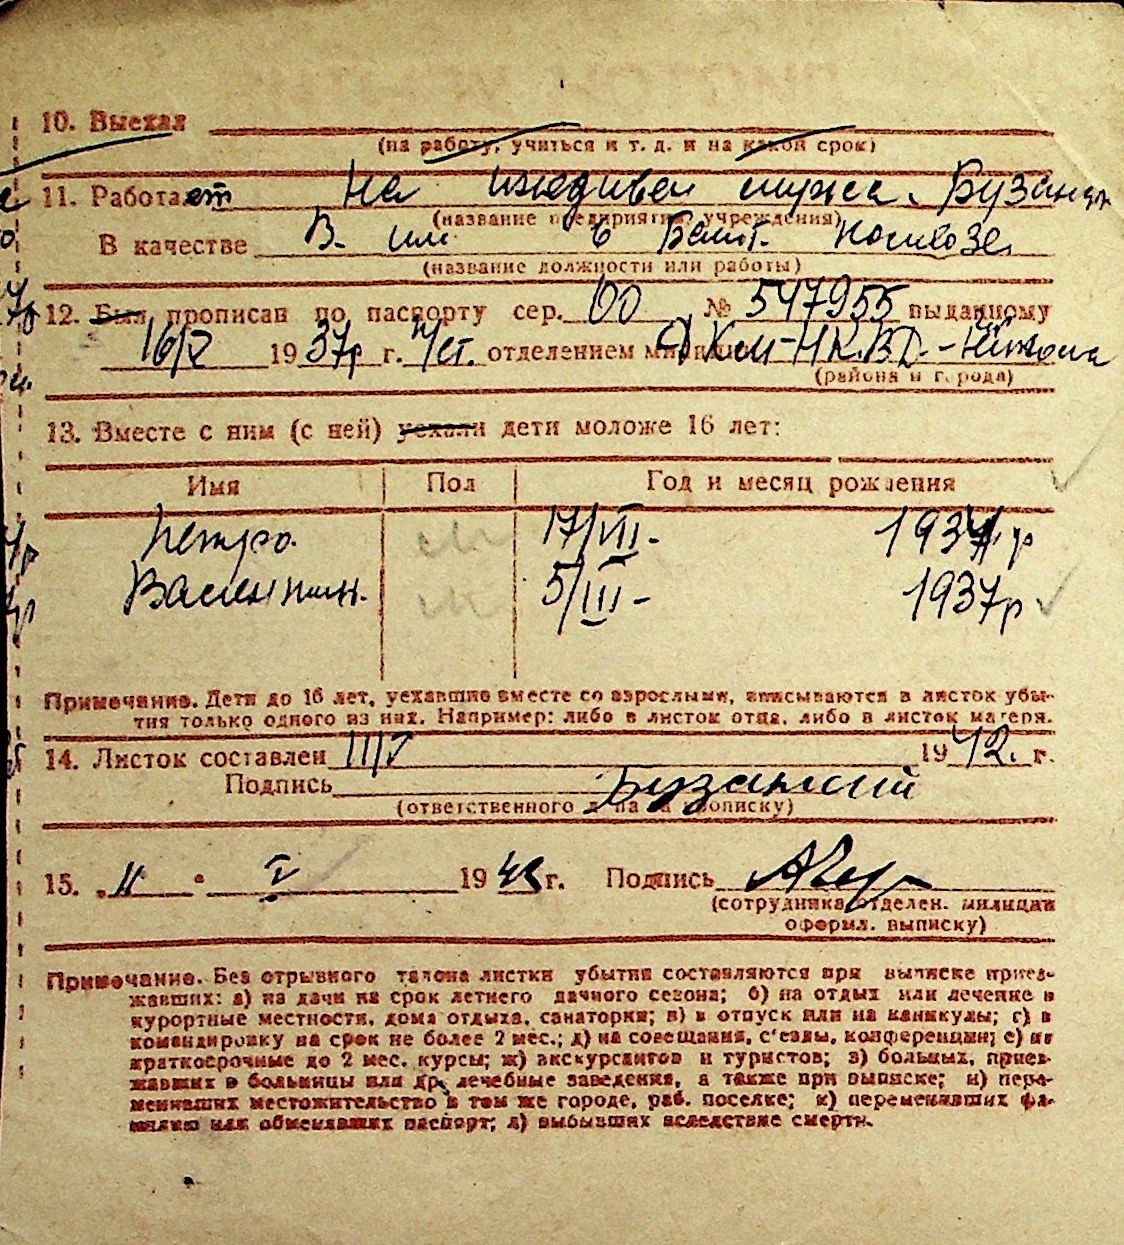 10. Выехал
(на работу, учиться и т. д. и на какой срок)
11. Работает На иждивен мужа.
(название предприятия, учреждения)
В качестве В.
(название должности или работы)
12. Был прописан по паспорту сер. № 547955 выданному
16/X 1937г г. отделением
(района и города)
13. Вместе с ним (с ней) уехали дети моложе 16 лет:
Имя Пол Год и месяц рождения
Петро. м 17/VII-
Валентин. м 5/III- 1937г
Примечание. Дети до 16 лет, уехавшие вместе со взрослыми, вписываются в листок убы-
тия только одного из них. Например: либо в листок отца, либо в листок матеря.
14. Листок составлен 1942. г.
Подпись
(ответственного за прописку)
15. „11“ 19 г. Подпись
(сотрудника отделен. милиции
оформл. выписку)
Примечание. Без отрывного талона листки убытия составляются при выписке приез-
жавших: а) на дачи на срок летнего дачного сезона; б) на отдых или лечение в
курортные местности, дома отдыха, санатории; в) в отпуск или на каникулы; г) в
командировку на срок не более 2 мес.; д) на совещания, с'езды, конференции; е) на
краткосрочные до 2 мес. курсы; ж) экскурсантов и туристов; з) больных, приез-
жавших в больницы или др. лечебные заведения, а также при выписке; и) пере-
менивших местожительство в том же городе, раб. поселке; к) переменивших фа-
милию или обменявших паспорт; л) выбывших вследствие смерти.